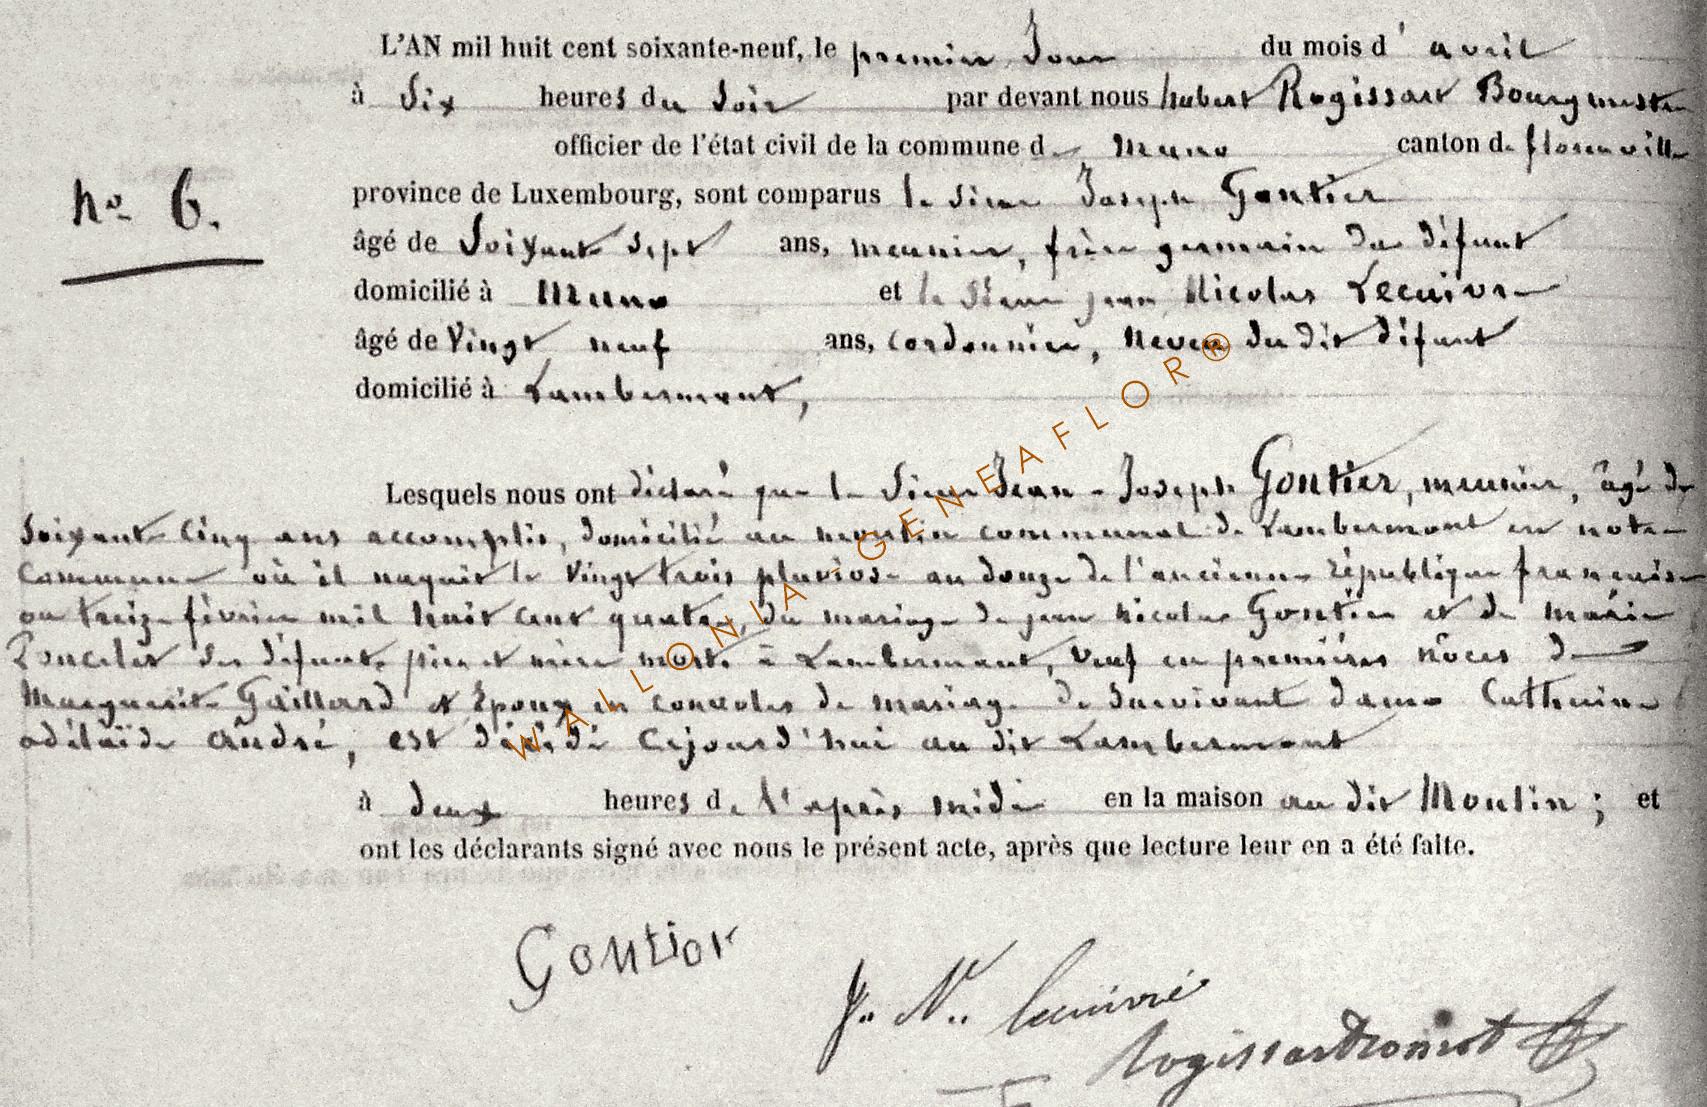 L'AN mil huit cent soixante-neuf, le premier Jour du mois d'avril
à Six heures du Soir par devant nous hubert Rogissart Bourgmestre
officier de l'état civil de la commune de Muno canton de florenville
n° 6.
province de Luxembourg, sont comparus le Sieur Joseph Gontier
âgé de Soixante Sept ans, meunier, frère germain du défunt
domicilié à Muno et le Sieur jean Nicolas Lecuivre
âgé de Vingt neuf ans, cordonnier, Neveu du dit défunt
domicilié à Lambermont,
Lesquels nous ont déclaré que le Sieur Jean-Joseph Gontier, meunier, âgé de
Soixante Cinq ans accomplis, domicilié au moulin communal de Lambermont en notre
Commune où il naquit le Vingt trois pluviose an douze de l'ancienne république française
ou treize février mil huit cent quatre, du mariage de jean nicolas Gontier et de marie
Poncelet ses défunts père et mère morts à Lambermont, Veuf en premières nôces de
Marguerite Gaillard et Epoux en convoles de mariage de survivant dame Catherine
adélaïde André, est décédé Cejourd'hui au dit Lambermont
à deux heures de l'après midi en la maison au dit Moulin ; et
ont les déclarants signé avec nous le présent acte, après que lecture leur en a été faite.
Gontier
J. N. lecuivre
Rogissart
WALLONIA-GENEAFLOR®